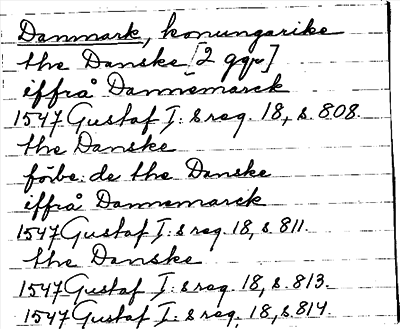 Danmark, konungarike
the Danske [2 ggr]
iffrå Dannemarck
1547 Gustaf I:s reg. 18, s. 808.
the Danske
förbe:de the Danske
iffrå Dannemarck
1547 Gustaf I:s reg. 18, s. 811.
the Danske
1547 Gustaf I:s reg. 18, s. 813.
1547 Gustaf I:s reg. 18, s. 814.